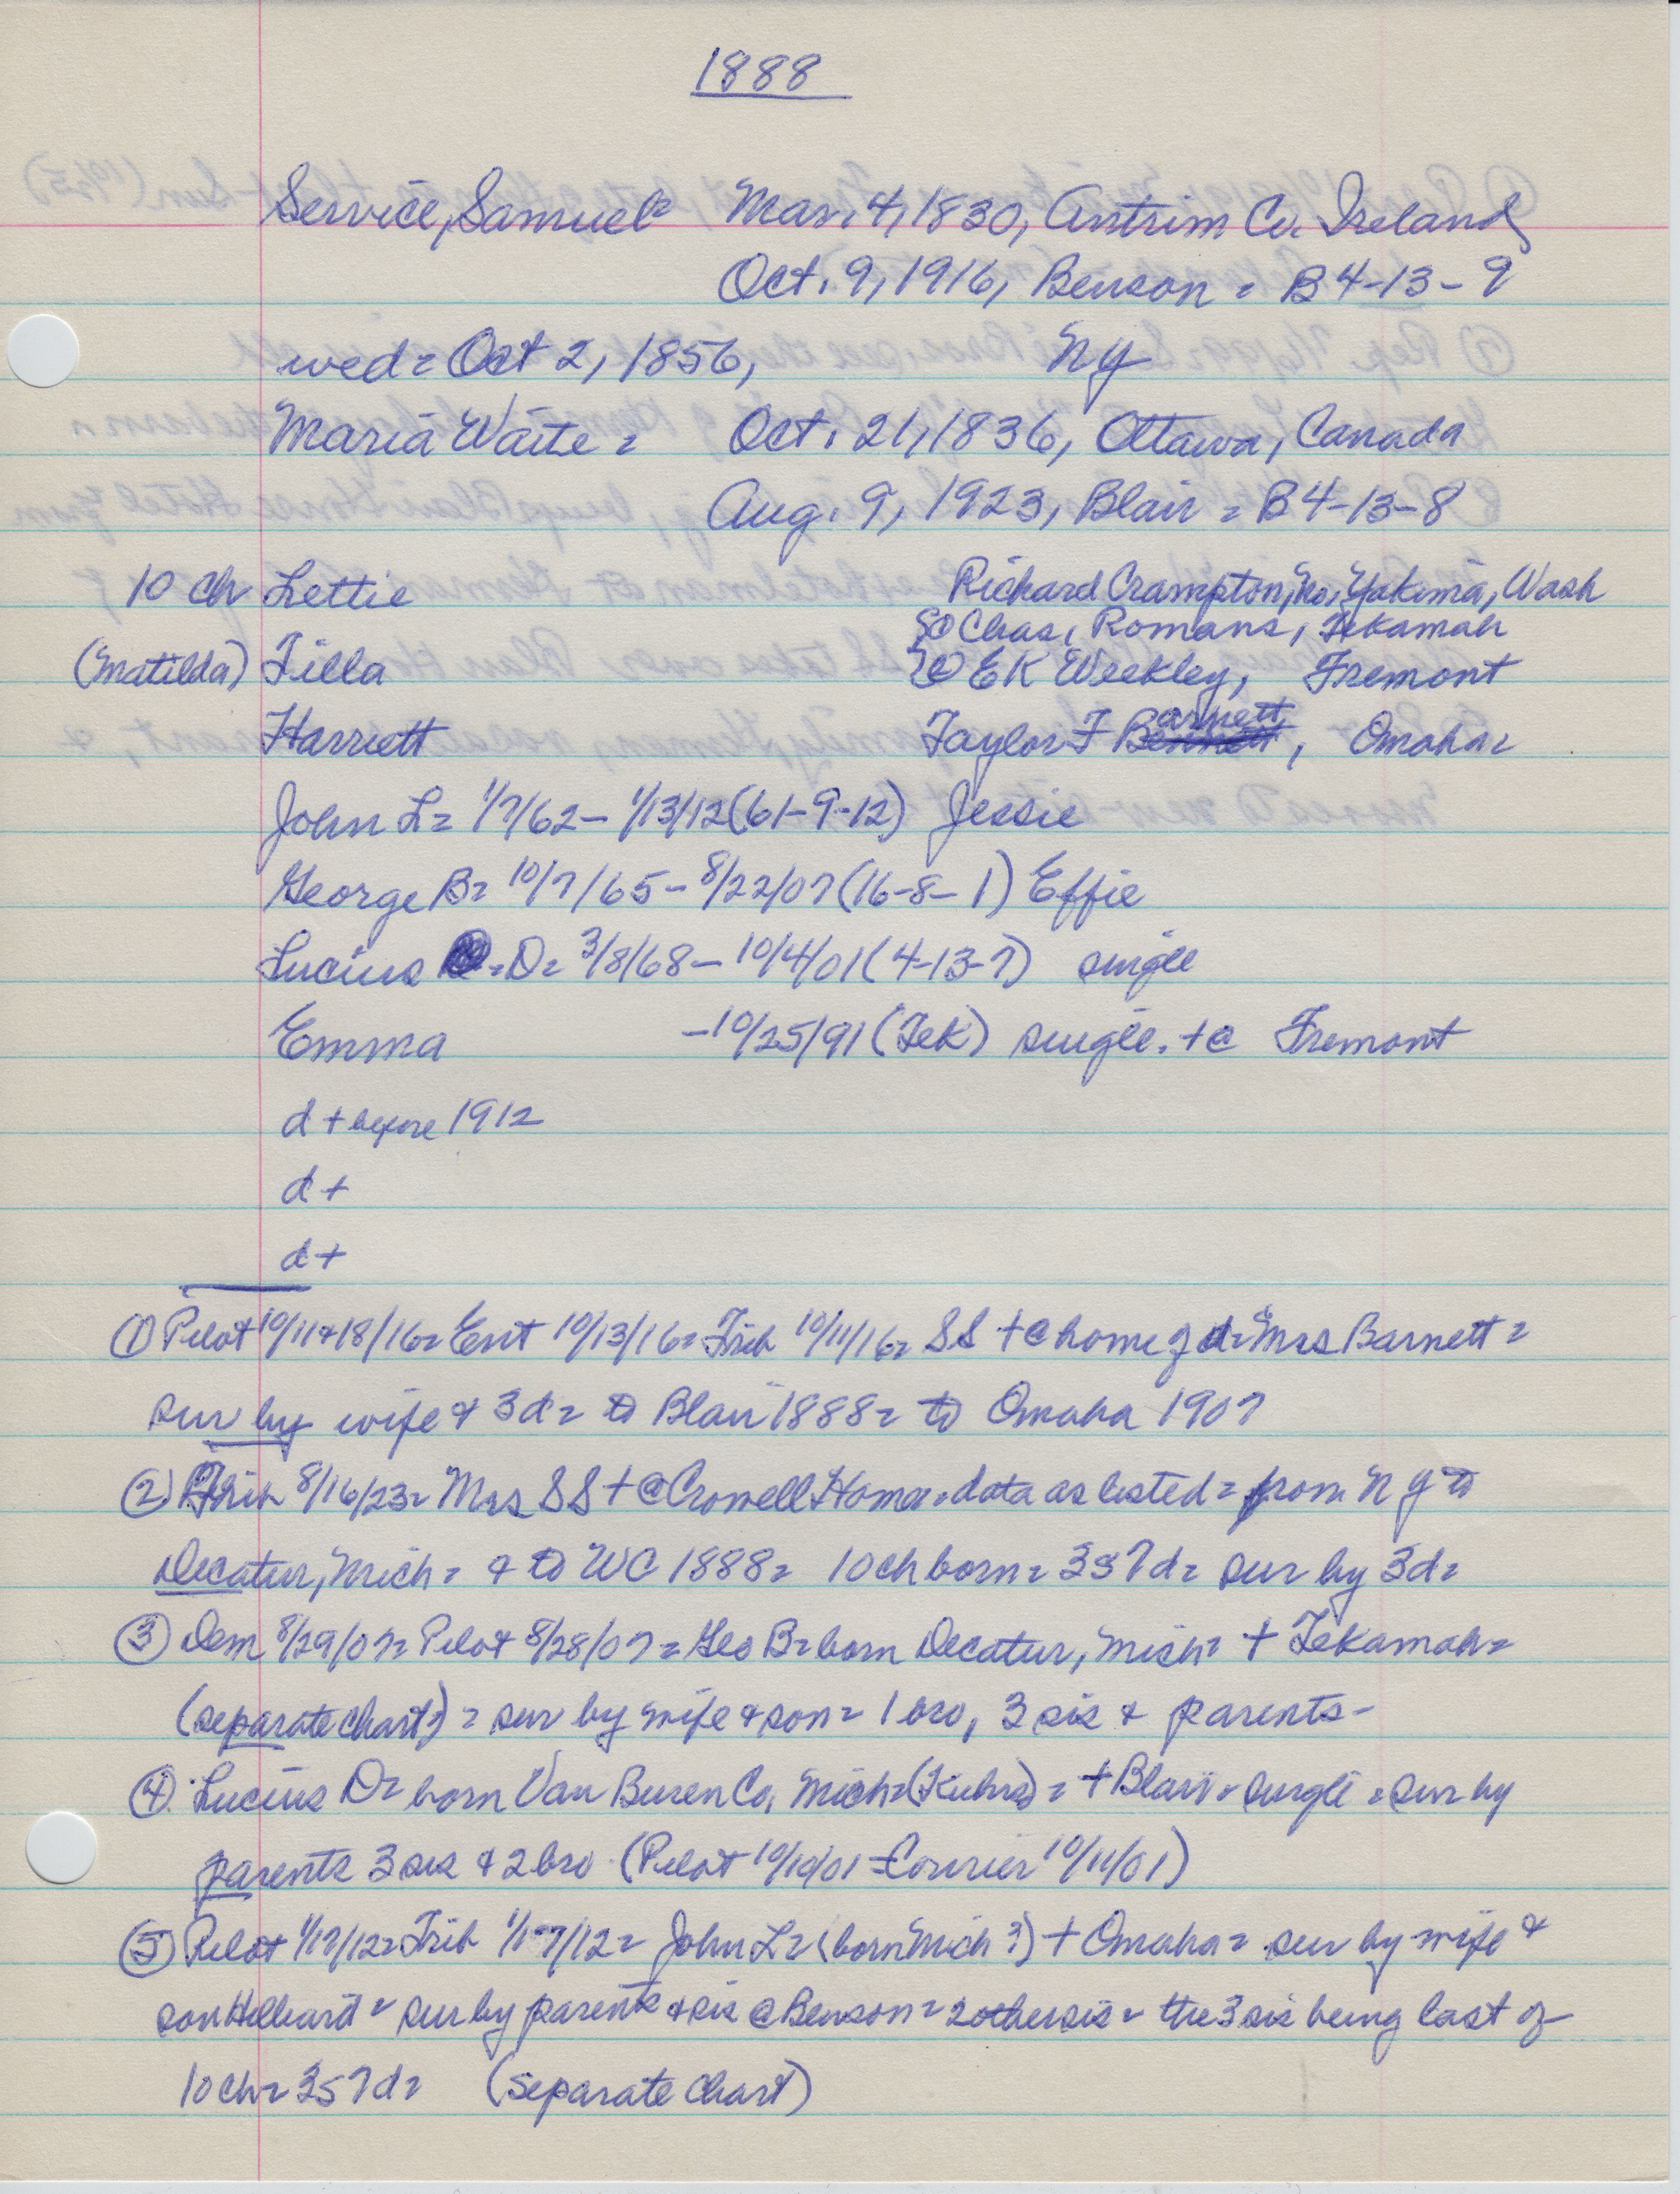 1888
Service, Samuel = Mar. 4, 1830, Antrim Co. Ireland
Oct. 9, 1916, Benson = B 4-13-9
wed = Oct 2, 1856, NY
Maria Waite = Oct. 21, 1836, Ottawa, Canada
Aug. 9, 1923, Blair = B 4-13-8
10 ch Lettie Richard Crampton, No. Yakima, Wash
① Chas. Romans, Tekamah
(Matilda) Tilla ② EK Weekley, Fremont
Harriett Taylor F Barnett, Omaha =
John L = 1/7/62 - 1/13/12 (61-9-12) Jessie
George B = 10/7/65 - 8/22/07 (16-8-1) Effie
Lucius = D = 3/8/68 - 10/4/01 (4-13-7) single
Emma - 10/25/91 (Tek) single. + @ Fremont
d + before 1912
d +
d +
① Pilot 10/11 & 18/16 = Ent 10/13/16 = Trib 10/11/16 = SS + @ home of d = Mrs Barnett =
sur by wife & 3d = to Blair 1888 = to Omaha 1907
② Trib 8/16/23 = Mrs SS + @ Crowell Home = data as listed = from NY to
Decatur, Mich = & to WC 1888 = 10 ch born = 3s 7d = sur by 3d =
③ Dem 8/29/07 = Pilot 8/28/07 = Geo B = born Decatur, Mich = + Tekamah =
(separate chart) = sur by wife & son = 1 bro, 3 sis & parents -
④ Lucius D = born Van Buren Co. Mich = (Kuhns) = + Blair = single = sur by
parents 3 sis & 2 bro (Pilot 10/10/01 = Courier 10/11/01)
⑤ Pilot 1/17/12 = Trib 1/17/12 = John L = (born Mich?) + Omaha = sur by wife &
son Hilliard = sur by parents & sis @ Benson = 2 other sis = the 3 sis being last of
10 ch = 3s 7d = (separate chart)